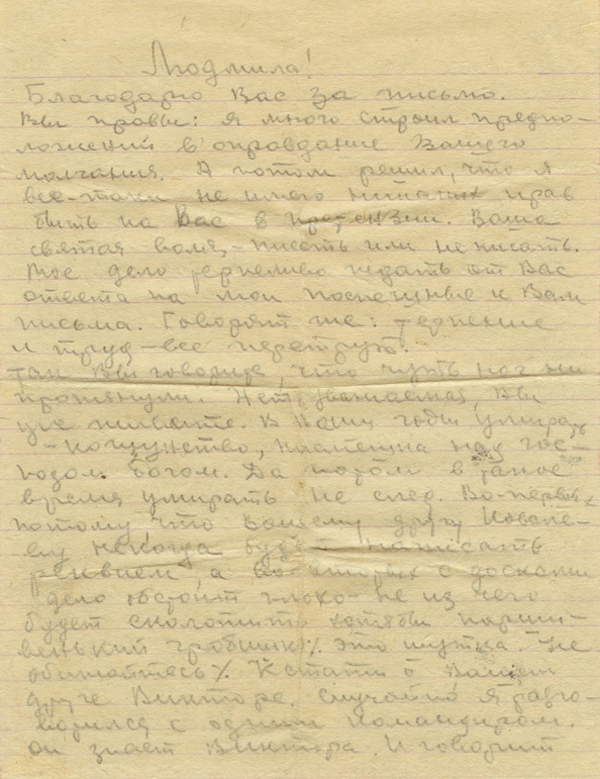 Людмила!
Благодарю Вас за письмо.
Вы правы: я много строил предпо-
ложений в оправдание Вашего
молчания. А потом решил, что я
все-таки не имею никаких прав
быть на Вас в претензии. Ваша
святая воля, - писать или не писать.
Мое дело терпеливо ждать от Вас
ответа на мои посланные к Вам
письма. Говорят же: терпение
и труд - все перетрут.
Там Вы говорите, что чуть ног не
протянули. Нет, уважаемая, Вы
уж живите. В Ваши годы умирать
- кощунство, насмешка над гос-
подом богом. Да потом в такое
время умирать не след. Во-первых,
потому что Вашему другу
ему некогда будет написать
реквием, а во-вторых с досками
дело обстоит плохо - не из чего
будет сколотить хотя бы парши-
венький гробишко /. Это шутка. Не
обижайтесь /. Кстати о Вашем
друге Викторе. Случайно я разго-
ворился с одним командиром.
он знает Виктора. И говорит